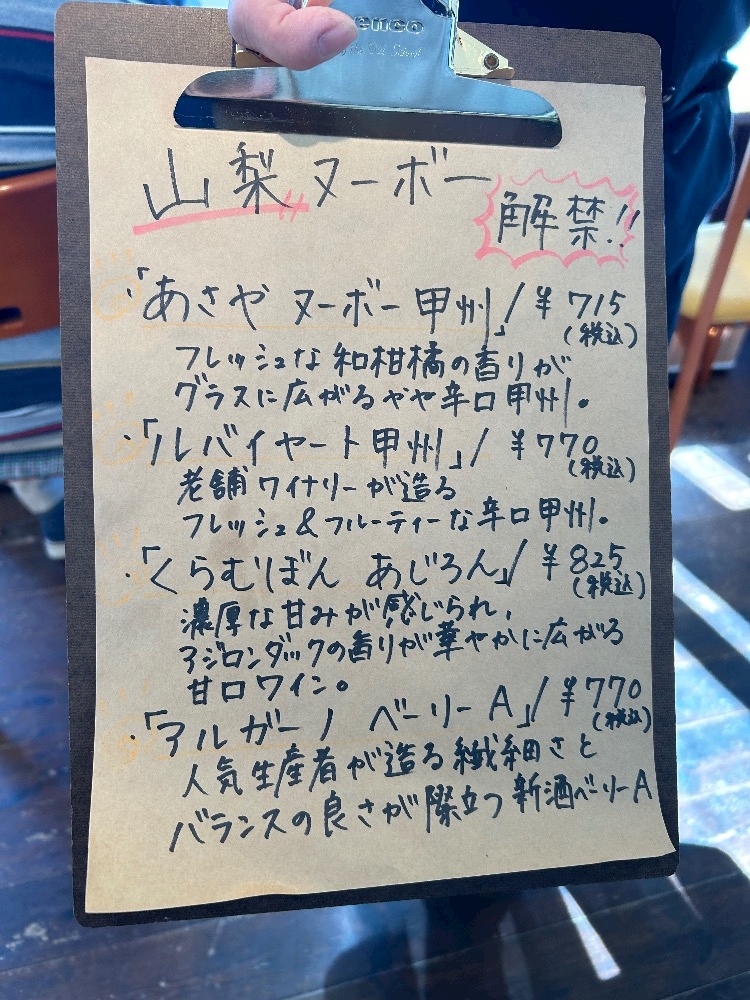 enco
the Old School
山梨ヌーボー
解禁!!
・「あさや ヌーボー甲州」/ ¥715
(税込)
フレッシュな和柑橘の香りが
グラスに広がるやや辛口甲州。
・「ルバイヤート甲州」/ ¥770
(税込)
老舗ワイナリーが造る
フレッシュ&フルーティーな辛口甲州。
・「くらむぼん あじろん」/ ¥825
(税込)
濃厚な甘みが感じられ、
アジロンダックの香りが華やかに広がる
甘口ワイン。
・「アルガーノ ベーリーA」/ ¥770
(税込)
人気生産者が造る繊細さと
バランスの良さが際立つ新酒ベーリーA